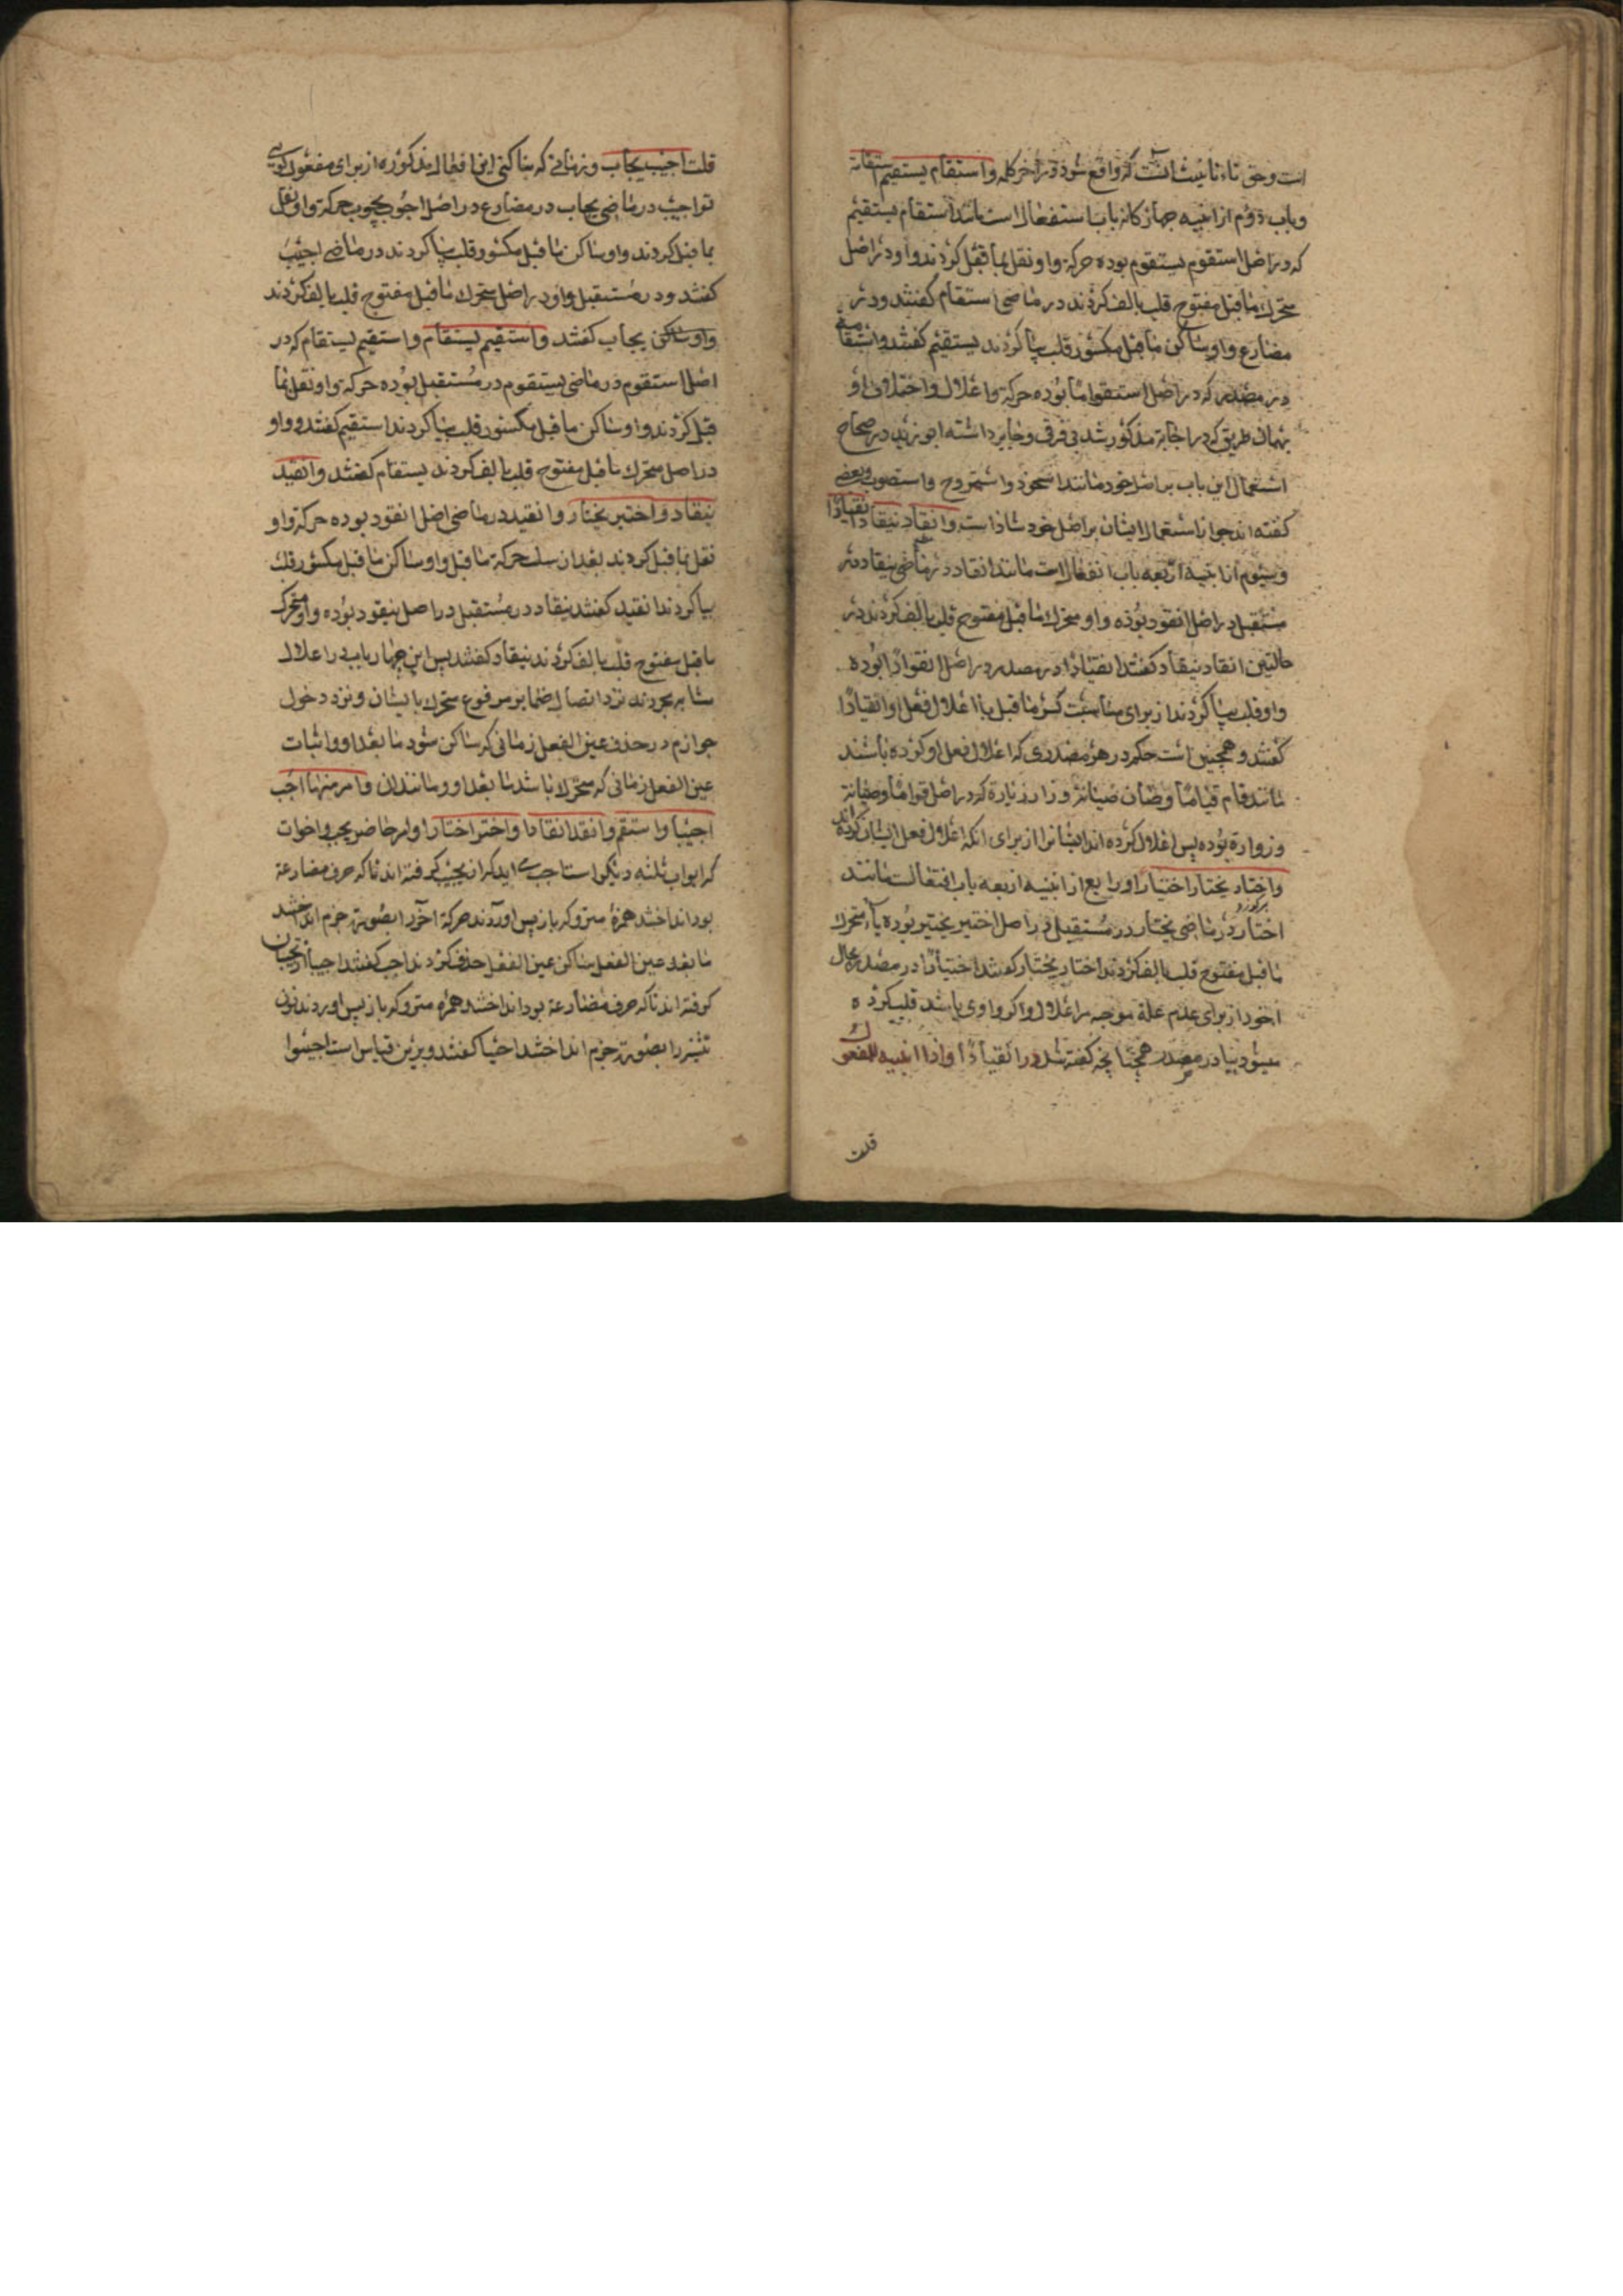 است و حق تاء تانیث آنست که واقع شود در اخر کلمه واستقام یستقیم ستقامة
و باب دوم از ابنیه چهارکانه باب استفعال است مانند استقام یستقیم
که در اصل استقوم یستقوم بوده حرکة واو نقل بما قبل کردند واو در اصل
متحرك ماقبل مفتوح قلب بالف کردند در ماضی استقام کفتند و در
مضارع واو ساکن ماقبل مکسور قلب بیا کردند یستقیم کفتند واستقامة
در مصدر که در اصل استقواما بوده حرکة واعلال و اختلاف او
بهمان طریق که در اجابة مذکور شد بی فرق و جایز داشته ابو زید در صحاح
استعمال این باب بر اصل خود مانند استحوذ واستروح واستصوب و بعضی
کفته اند جواز استعمال ایشان بر اصل خود شاذ است وانقاد ینقاد انقیادا
و سیوم از ابنیه اربعه باب انفعال است مانند انقاد در ماضی ینقاد در
مستقبل در اصل انقود بوده واو متحرك ماقبل مفتوح قلب بالف کردند در
حالتین انقاد ینقاد کفتند انقیادا در مصدر در اصل انقوادا بوده
واو قلب بیا کردند از برای مناسبت کسر ماقبل با اعلال فعل او انقیادا
کفتند و همچنین است حکم در هر مصدری که اعلال فعل او کرده باشند
مانند قام قیاما وصان صیانة وزار زیارة که در اصل قواما وصوانة
وزوارة بوده پس اعلال کرده اند ایشانرا از برای انکه اعلال فعل ایشان کرده اند
واختار یختار اختیارا و رابع از ابنیه اربعه باب افتعالست مانند
اختار در ماضی یختار در مستقبل در اصل اختیر یختیر بوده یاء متحرك
ماقبل مفتوح قلب بالف کردند اختار یختار کفتند اختیارا در مصدر بحال
خود از برای عدم علة موجبه مر اعلال واکر واوی باشد قلب کرده
میشود بیا در مصدر همچنانچه کفته شد در انقیادا واذا ابنیه للمفعول
قلت
قلت اجیب یجاب و زمانی که بنا کنی این افعال مذکوره از برای مفعول کویی
تو اجیب در ماضی یجاب در مضارع در اصل اجوب یجوب حرکة واو نقل
بما قبل کردند واو ساکن ماقبل مکسور قلب بیا کردند در ماضی اجیب
کفتند و در مستقبل واو در اصل متحرك ماقبل مفتوح قلب بالف کردند
یجاب کفتند واستقیم یستقام واستقیم یستقام که در
اصل استقوم در ماضی یستقوم در مستقبل بوده حرکة واو نقل بما
قبل کردند واو ساکن ماقبل مکسور قلب بیا کردند استقیم کفتند و واو
در اصل متحرك ماقبل مفتوح قلب بالف کردند یستقام کفتند وانقید
ینقاد واختیر یختار وانقید در ماضی اصل انقود بوده حرکة واو
نقل بما قبل کردند بعد از سلب حرکة ماقبل واو ساکن ماقبل مکسور قلب
بیا کردند انقید کفتند ینقاد در مستقبل در اصل ینقود بوده واو متحرك
ماقبل مفتوح قلب بالف کردند ینقاد کفتند پس این چهار باب در اعلال
مشابه مجردند نزد اتصال ضمایر مرفوع متحرك بایشان و نزد دخول
جوازم در حذف عین الفعل زمانی که ساکن شود ما بعد او و اثبات
عین الفعل زمانی که متحرك باشد ما بعد او و مانند ان وامر منها اجب
اجیبا واستقم وانقد انقادا واختر اختارا و امر حاضر یجیب و اخوات
که ابواب ثلثه دیکراست اجب می اید که از یجیب کرفته اند تا که حرف مضارعة
بود انداختند همزۀ متروکه باز پس اوردند حرکة اخر را بصورة جزم انداختند
ما بعد عین الفعل ساکن عین الفعل حذف کردند اجب کفتند اجیبا از تجیبان
کرفته اند تا که حرف مضارعة بود انداختند همزه متروکه باز پس اوردند نون
تثنیه را بصورة جزم انداختند اجیبا کفتند و برین قیاس است اجیبوا